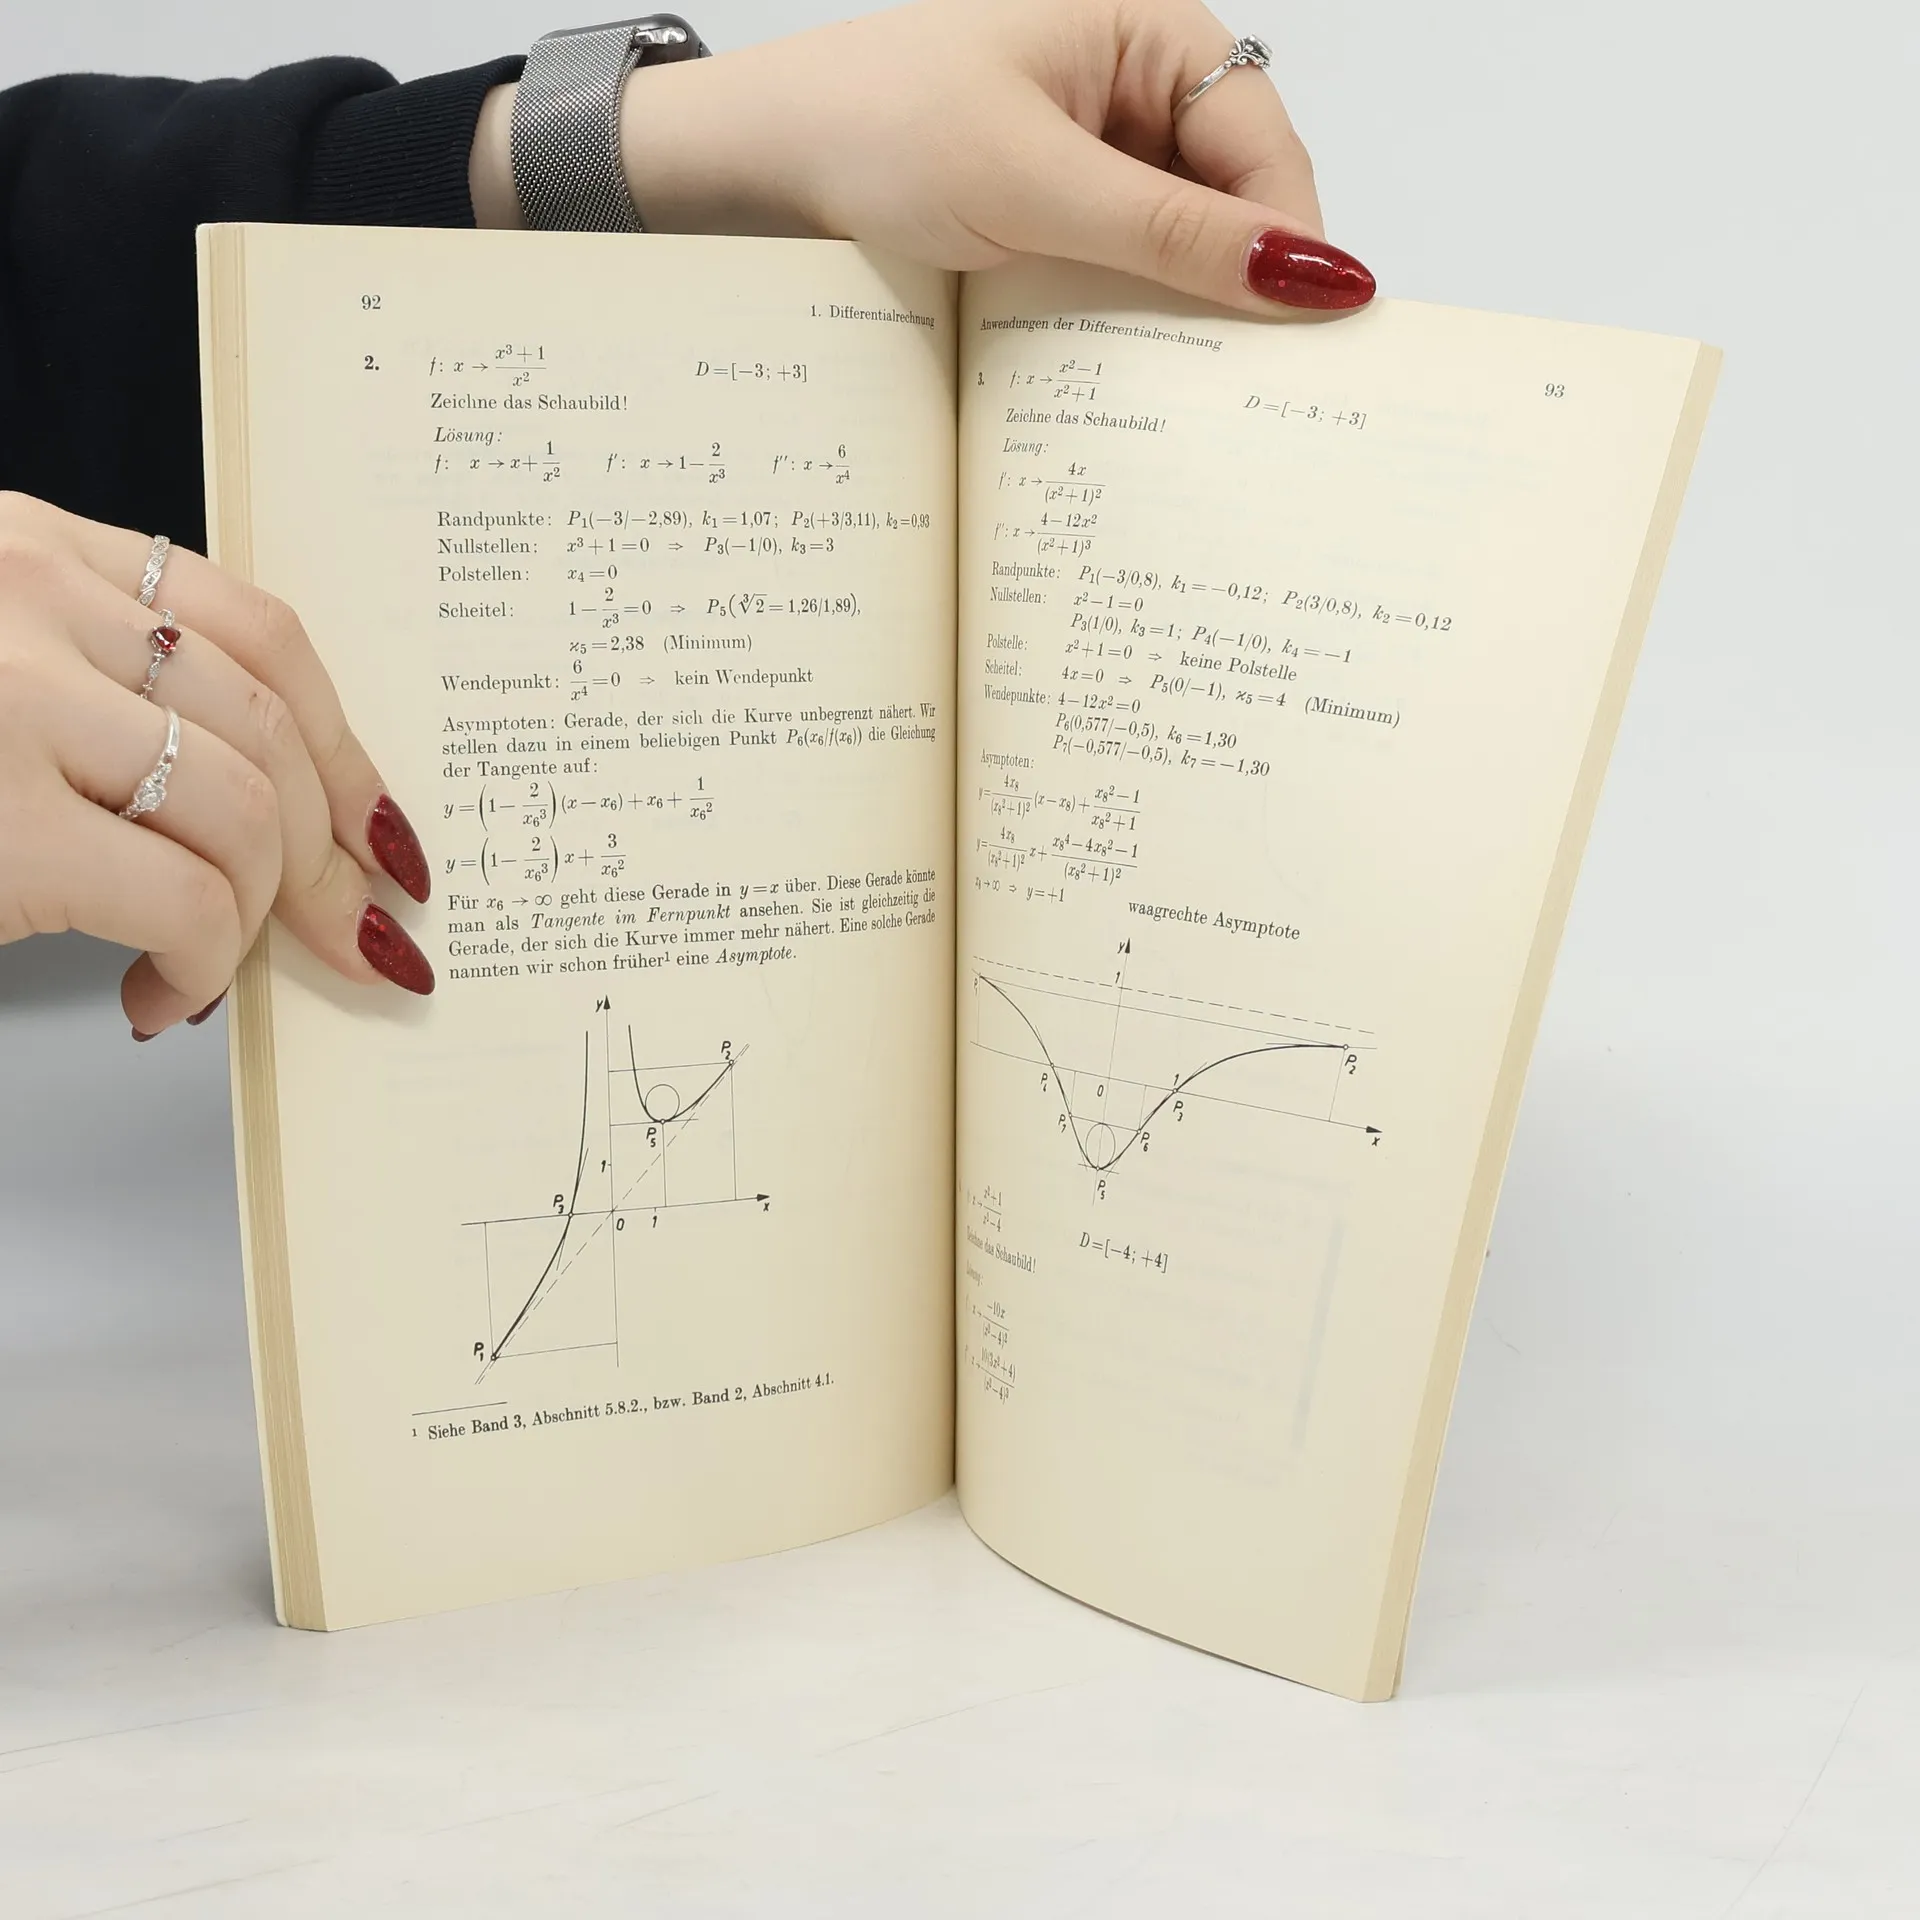 92
1. Differentialrechnung
2. f: x → (x³+1)/x² D=[−3; +3]
Zeichne das Schaubild!
Lösung:
f: x → x+1/x² f′: x → 1−2/x³ f″: x → 6/x⁴
Randpunkte: P₁(−3/−2,89), k₁=1,07; P₂(+3/3,11), k₂=0,93
Nullstellen: x³+1=0 ⇒ P₃(−1/0), k₃=3
Polstellen: x₄=0
Scheitel: 1−2/x³=0 ⇒ P₅(∛2=1,26/1,89),
ϰ₅=2,38 (Minimum)
Wendepunkt: 6/x⁴=0 ⇒ kein Wendepunkt
Asymptoten: Gerade, der sich die Kurve unbegrenzt nähert. Wir
stellen dazu in einem beliebigen Punkt P₆(x₆/f(x₆)) die Gleichung
der Tangente auf:
y=(1−2/x₆³)(x−x₆)+x₆+1/x₆²
y=(1−2/x₆³)x+3/x₆²
Für x₆ → ∞ geht diese Gerade in y=x über. Diese Gerade könnte
man als Tangente im Fernpunkt ansehen. Sie ist gleichzeitig die
Gerade, der sich die Kurve immer mehr nähert. Eine solche Gerade
nannten wir schon früher¹ eine Asymptote.
y
P₂
P₅
1
P₃
x
0 1
P₁
¹ Siehe Band 3, Abschnitt 5.8.2., bzw. Band 2, Abschnitt 4.1.
Anwendungen der Differentialrechnung
93
3. f: x → (x²−1)/(x²+1) D=[−3; +3]
Zeichne das Schaubild!
Lösung:
f′: x → 4x/(x²+1)²
f″: x → (4−12x²)/(x²+1)³
Randpunkte: P₁(−3/0,8), k₁=−0,12; P₂(3/0,8), k₂=0,12
Nullstellen: x²−1=0
P₃(1/0), k₃=1; P₄(−1/0), k₄=−1
Polstelle: x²+1=0 ⇒ keine Polstelle
Scheitel: 4x=0 ⇒ P₅(0/−1), ϰ₅=4 (Minimum)
Wendepunkte: 4−12x²=0
P₆(0,577/−0,5), k₆=1,30
P₇(−0,577/−0,5), k₇=−1,30
Asymptoten:
y=4x₈/(x₈²+1)² (x−x₈)+(x₈²−1)/(x₈²+1)
y=4x₈/(x₈²+1)² x+(x₈⁴−4x₈²−1)/(x₈²+1)²
x₈→∞ ⇒ y=+1 waagrechte Asymptote
y
1
P₁
P₂
P₄
0
1
P₃
x
P₇
P₆
P₅
x → (x²+1)/(x²−4) D=[−4; +4]
Zeichne das Schaubild!
Lösung:
f′ x → −10x/(x²−4)²
f″ x → 10(3x²+4)/(x²−4)³